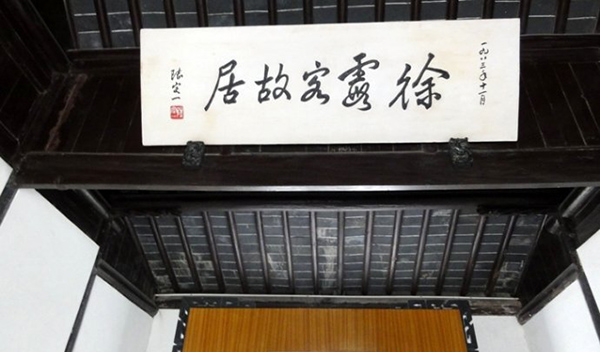 一九八三年十一月
徐霞客故居
张定一